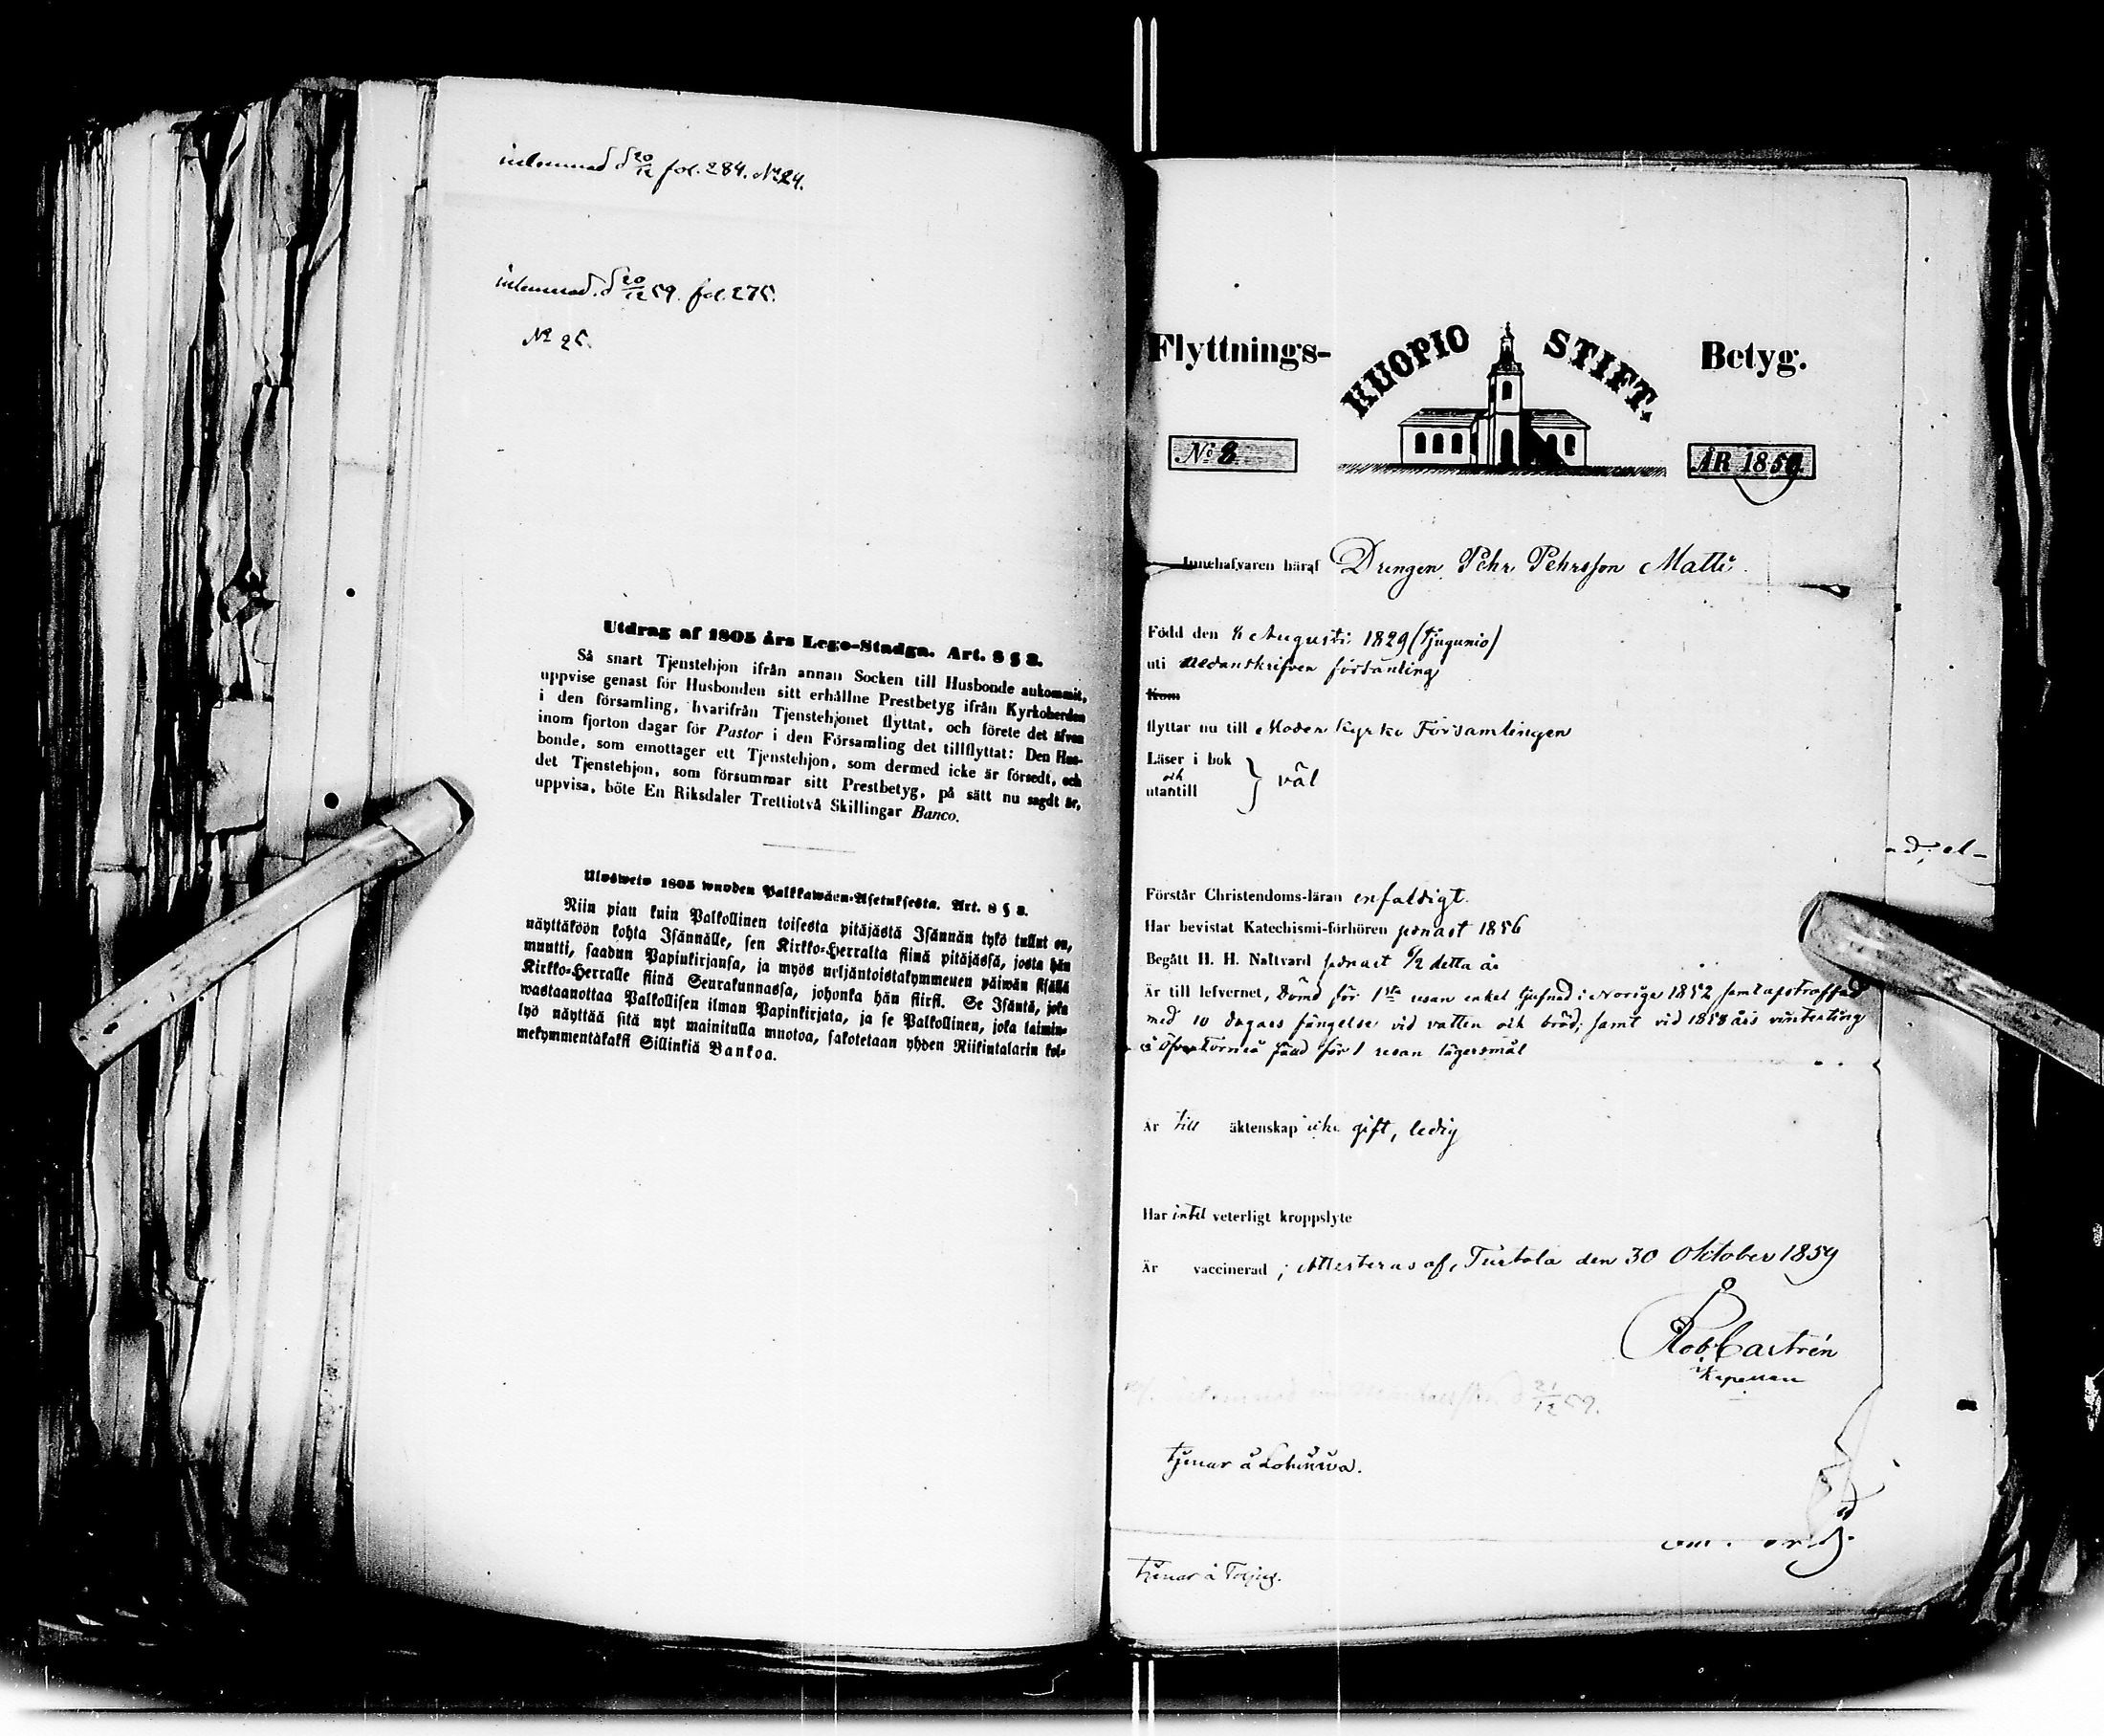 inlemnad d 20/12 fol. 284. No 24.
inlemnad d 20/12 59. fol. 275.
No 25.
Utdrag af 1805 års Lego-Stadga. Art. 8 § 3.
Så snart Tjenstehjon ifrån annan Socken till Husbonde ankommit,
uppvise genast för Husbonden sitt erhållne Prestbetyg ifrån Kyrkoherden
i den församling, hvarifrån Tjenstehjonet flyttat, och förete det äfven
inom fjorton dagar för Pastor i den Församling det tillflyttat: Den Hus-
bonde, som emottager ett Tjenstehjon, som dermed icke är försedt, och
det Tjenstehjon, som försummar sitt Prestbetyg, på sätt nu sagdt är,
uppvisa, böte En Riksdaler Trettiotvå Skillingar Banco.
Ulosweto 1805 wuoden Palkkawäen-Asetuksesta. Art. 8 § 3.
Niin pian kuin Palkollinen toisesta pitäjästä Isännän tykö tullut on,
näyttäköön kohta Isännälle, sen Kirkko-Herralta siinä pitäjässä, josta hän
muutti, saadun Papinkirjansa, ja myös neljäntoistakymmenen päiwän sisällä
Kirkko-Herralle siinä Seurakunnassa, johonka hän siirsi. Se Isäntä, joka
wastaanottaa Palkollisen ilman Papinkirjata, ja se Palkollinen, joka laimin-
lyö näyttää sitä nyt mainitulla muotoa, sakotetaan yhden Riikintalarin kol-
mekymmentäkaksi Sillinkiä Bankoa.
Flyttnings- KUOPIO STIFT. Betyg.
No 8. ÅR 1859.
Innehafvaren häraf Drengen Pehr Pehrsson Matti
Född den 8 Augusti 1829 (tjugunio)
uti Nedanskrifven församling
Kom
flyttar nu till Moder Kyrko Församlingen
Läser i bok
och
utantill } väl
Förstår Christendoms-läran enfaldigt.
Har bevistat Katechismi-förhören senast 1856
Begått H. H. Nattvard senast 6/2 detta år
Är till lefvernet, dömd för 1sta resan enkel tjufnad i Norige 1852 samt afstraffad
med 10 dagars fängelse vid vatten och bröd; samt vid 1858 års vinterting
i Öfvertorneå fäld för 1 resan lägersmål
Är till äktenskap icke gift, ledig
Har intet veterligt kroppslyte
Är vaccinerad; Attesteras af, Turtola den 30 Oktober 1859
Rob Castrén
Kapellan
21/12 59.
tjenar å Lohiniva.
tjenar å